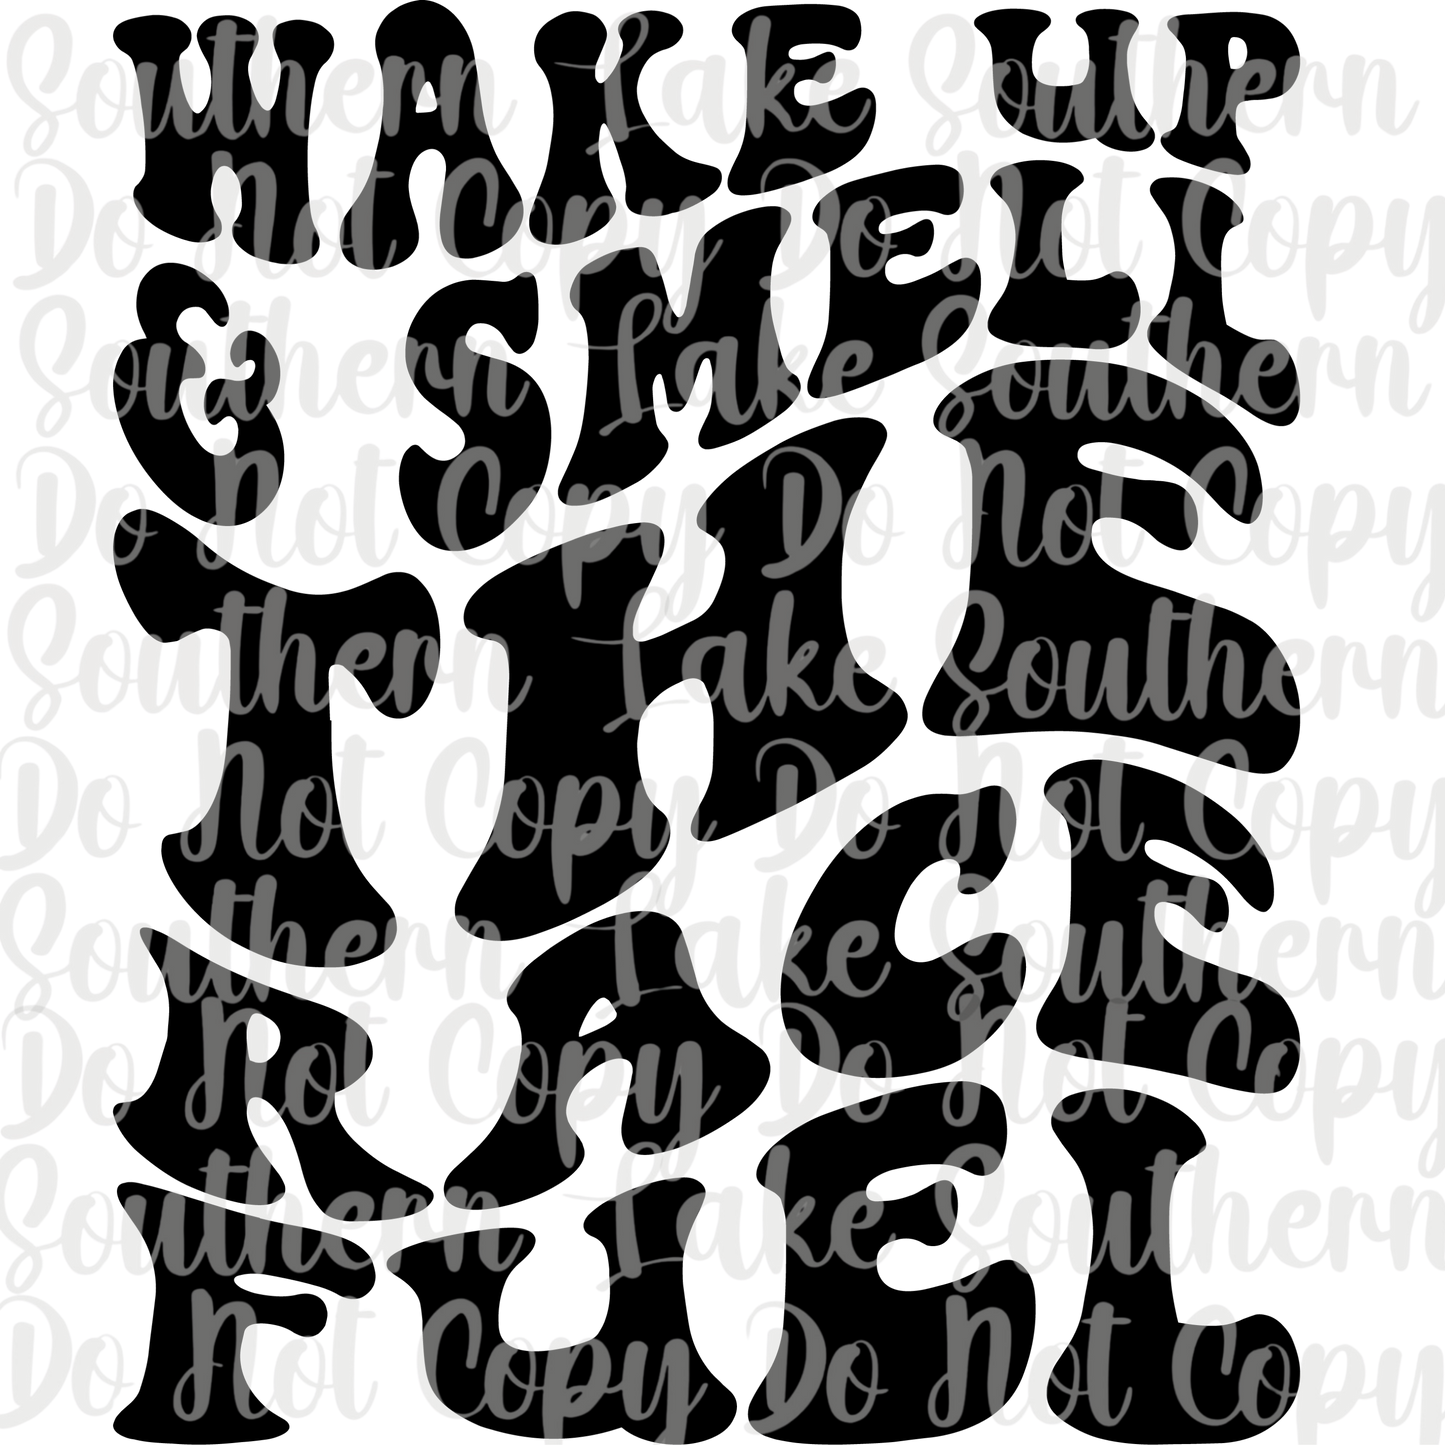 WAKE UP
& SMELL
THE
RACE
FUEL
Southern Lake Southern
Do Not Copy Do Not Copy
Southern Lake Southern
Do Not Copy Do Not Copy
Southern Lake Southern
Do Not Copy Do Not Copy
Southern Lake Southern
Do Not Copy Do Not Copy
Southern Lake Southern
Do Not Copy Do Not Copy